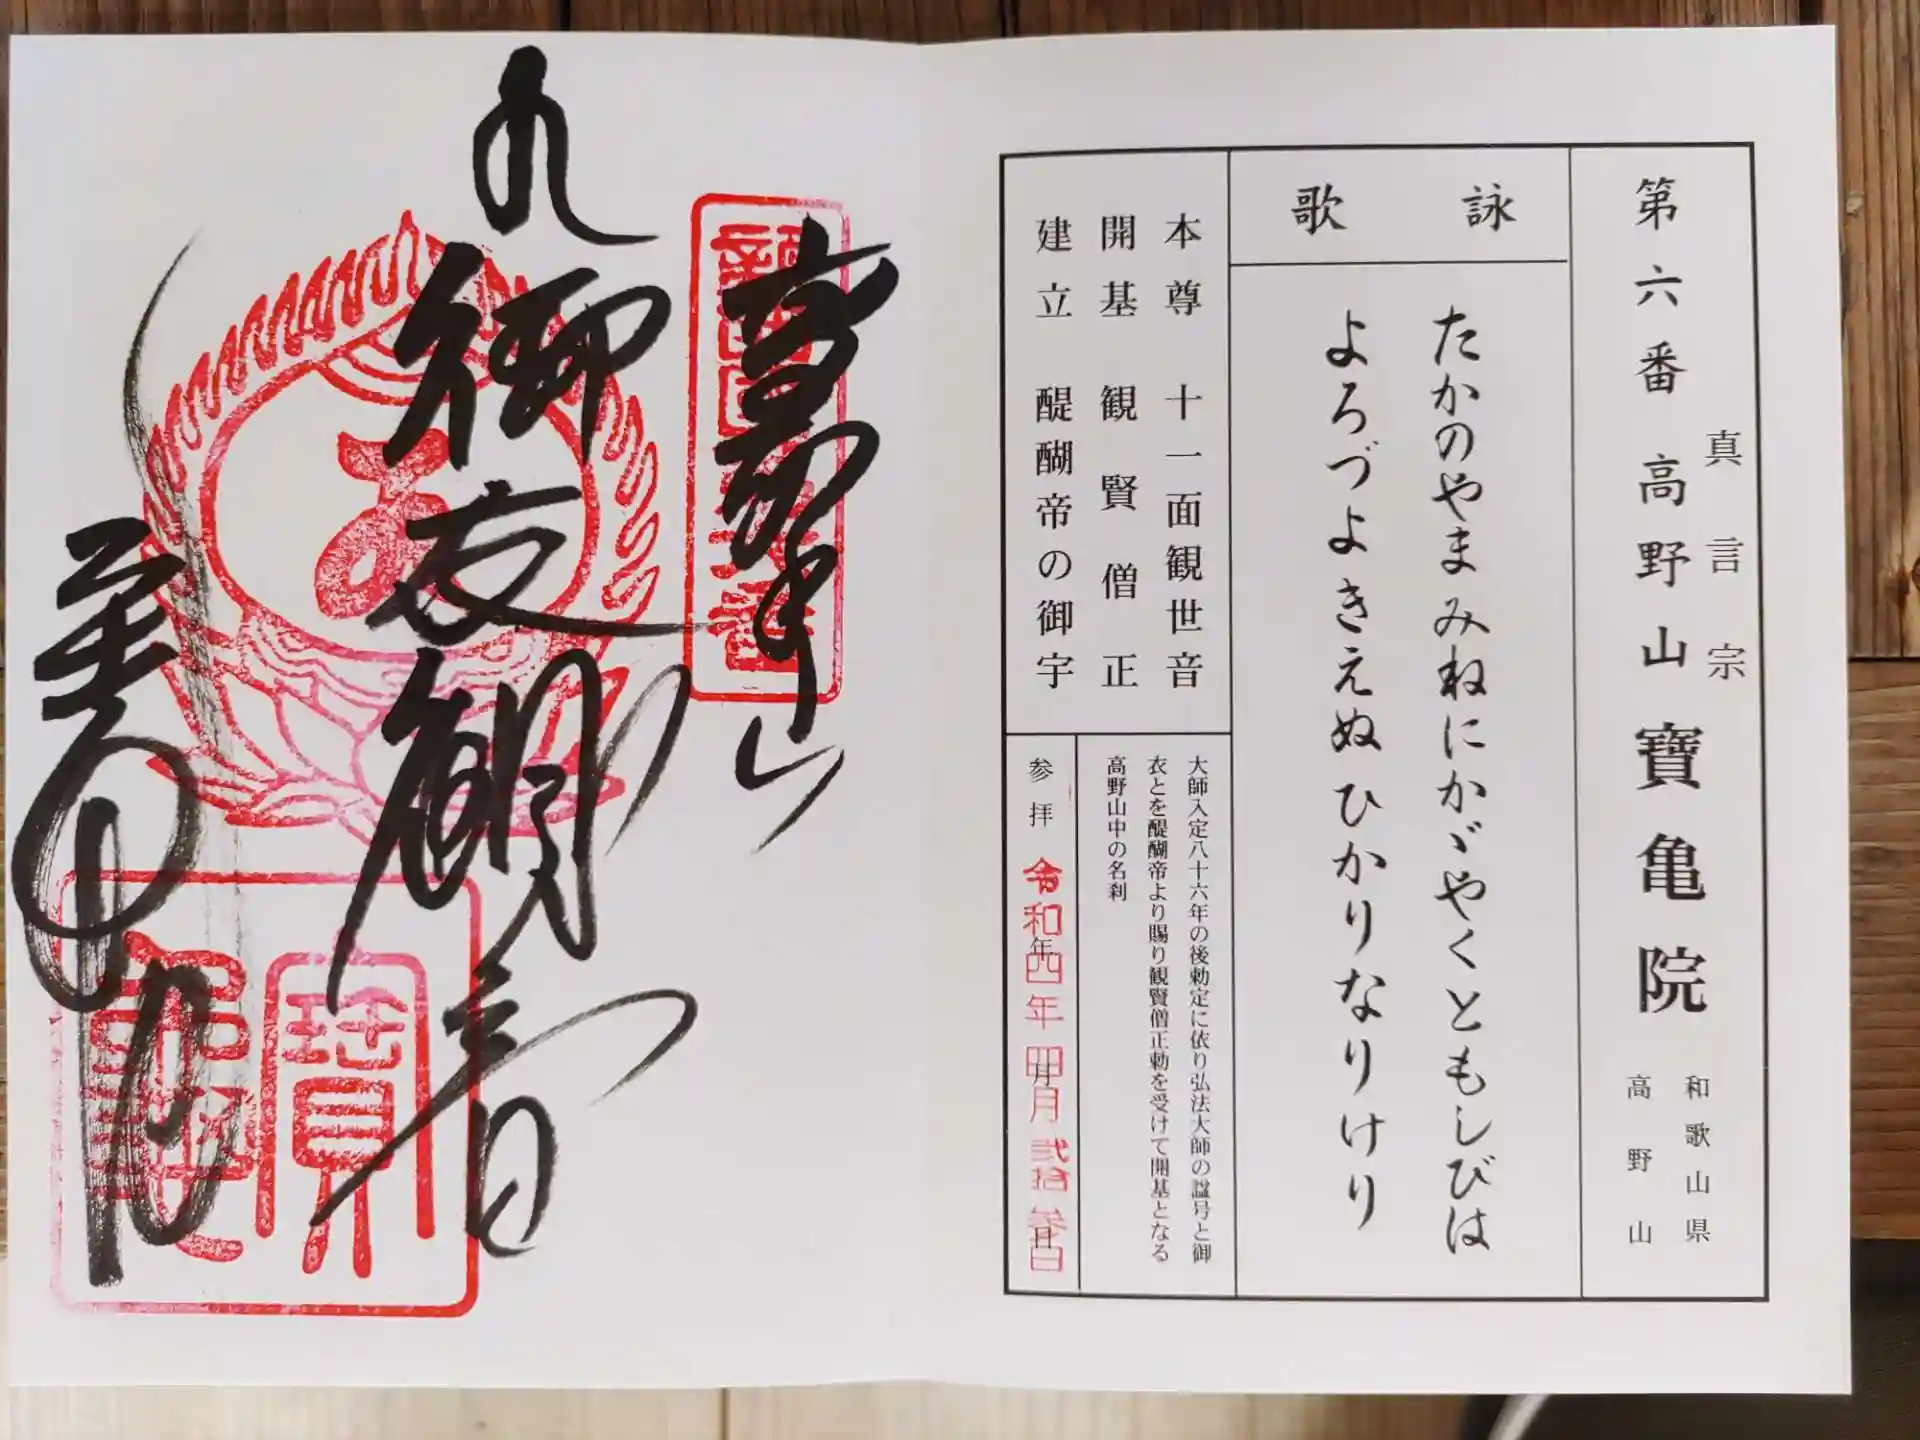 真言宗
第六番 高野山 寶亀院
和歌山県
高野山
詠歌
たかのやま みねにかゞやくともしびは
よろづよ きえぬ ひかりなりけり
本尊 十一面観世音
開基 観賢僧正
建立 醍醐帝の御宇
大師入定八十六年の後勅定に依り弘法大師の諡号と御
衣とを醍醐帝より賜り観賢僧正勅を受けて開基となる
高野山中の名刹
参拝 年 月 日
令和四年四月弐拾参日
高野山
御衣観音
寶亀